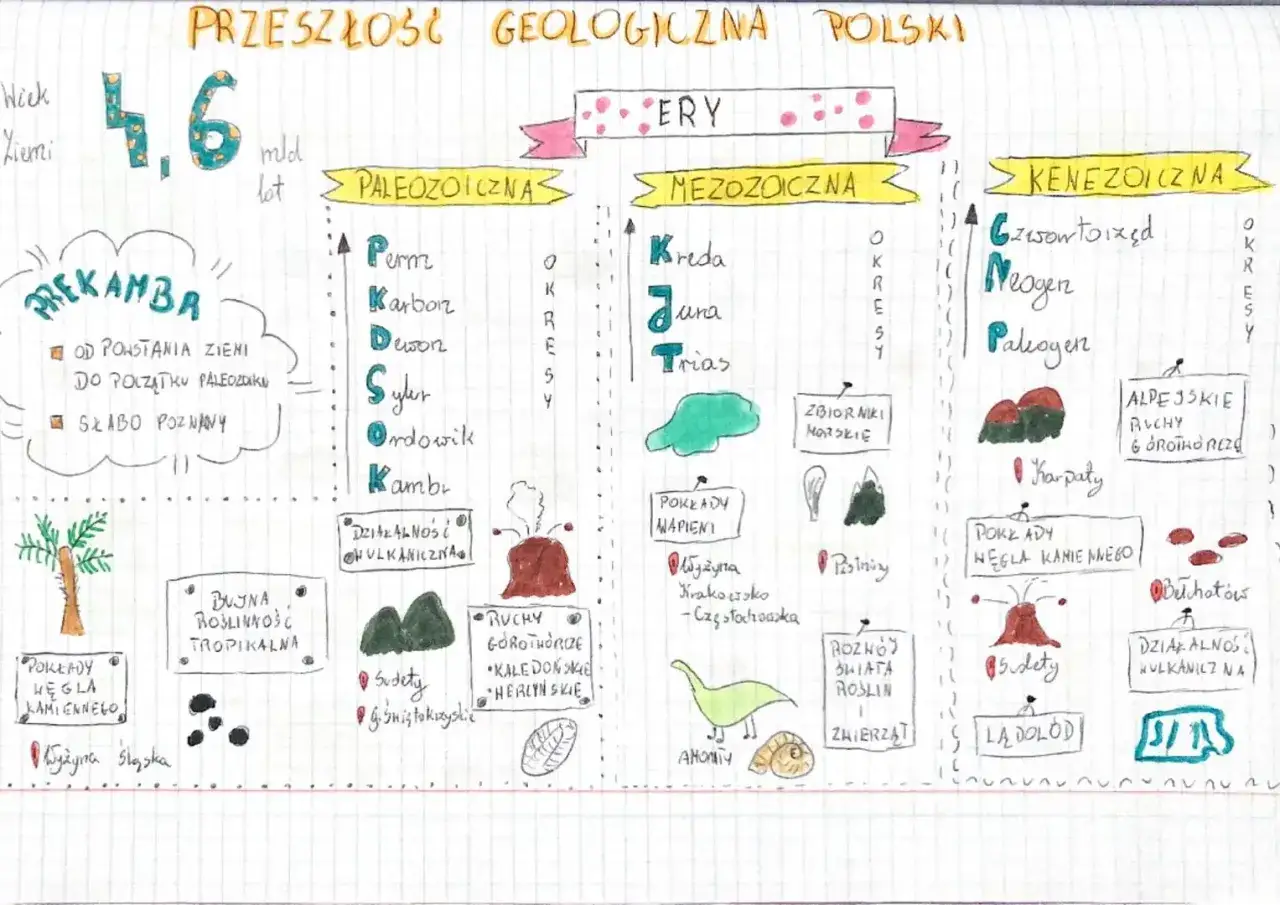 PRZESZŁOŚĆ GEOLOGICZNA POLSKI
Wiek
Ziemi
4,6
mld
lat
ERY
PREKAMBR
OD POWSTANIA ZIEMI
DO POCZĄTKU PALEOZOIKU
SŁABO POZNANY
PALEOZOICZNA
Perm
Karbon
Dewon
Sylur
Ordowik
Kambr
OKRESY
DZIAŁALNOŚĆ
WULKANICZNA
BUJNA
ROŚLINNOŚĆ
TROPIKALNA
POKŁADY
WĘGLA
KAMIENNEGO
Wyżyna Śląska
Sudety
G. Świętokrzyskie
RUCHY
GÓROTWÓRCZE
•KALEDOŃSKIE
•HERCYŃSKIE
MEZOZOICZNA
Kreda
Jura
Trias
OKRESY
ZBIORNIKI
MORSKIE
POKŁADY
WAPIENI
Wyżyna
Krakowsko
-Częstochowska
Pieniny
ROZWÓJ
ŚWIATA
ROŚLIN
I
ZWIERZĄT
AMONITY
KENEZOICZNA
Czwartorzęd
Neogen
Paleogen
OKRESY
ALPEJSKIE
RUCHY
GÓROTWÓRCZE
Karpaty
POKŁADY
WĘGLA KAMIENNEGO
Bełchatów
Sudety
DZIAŁALNOŚĆ
WULKANICZNA
LĄDOLÓD